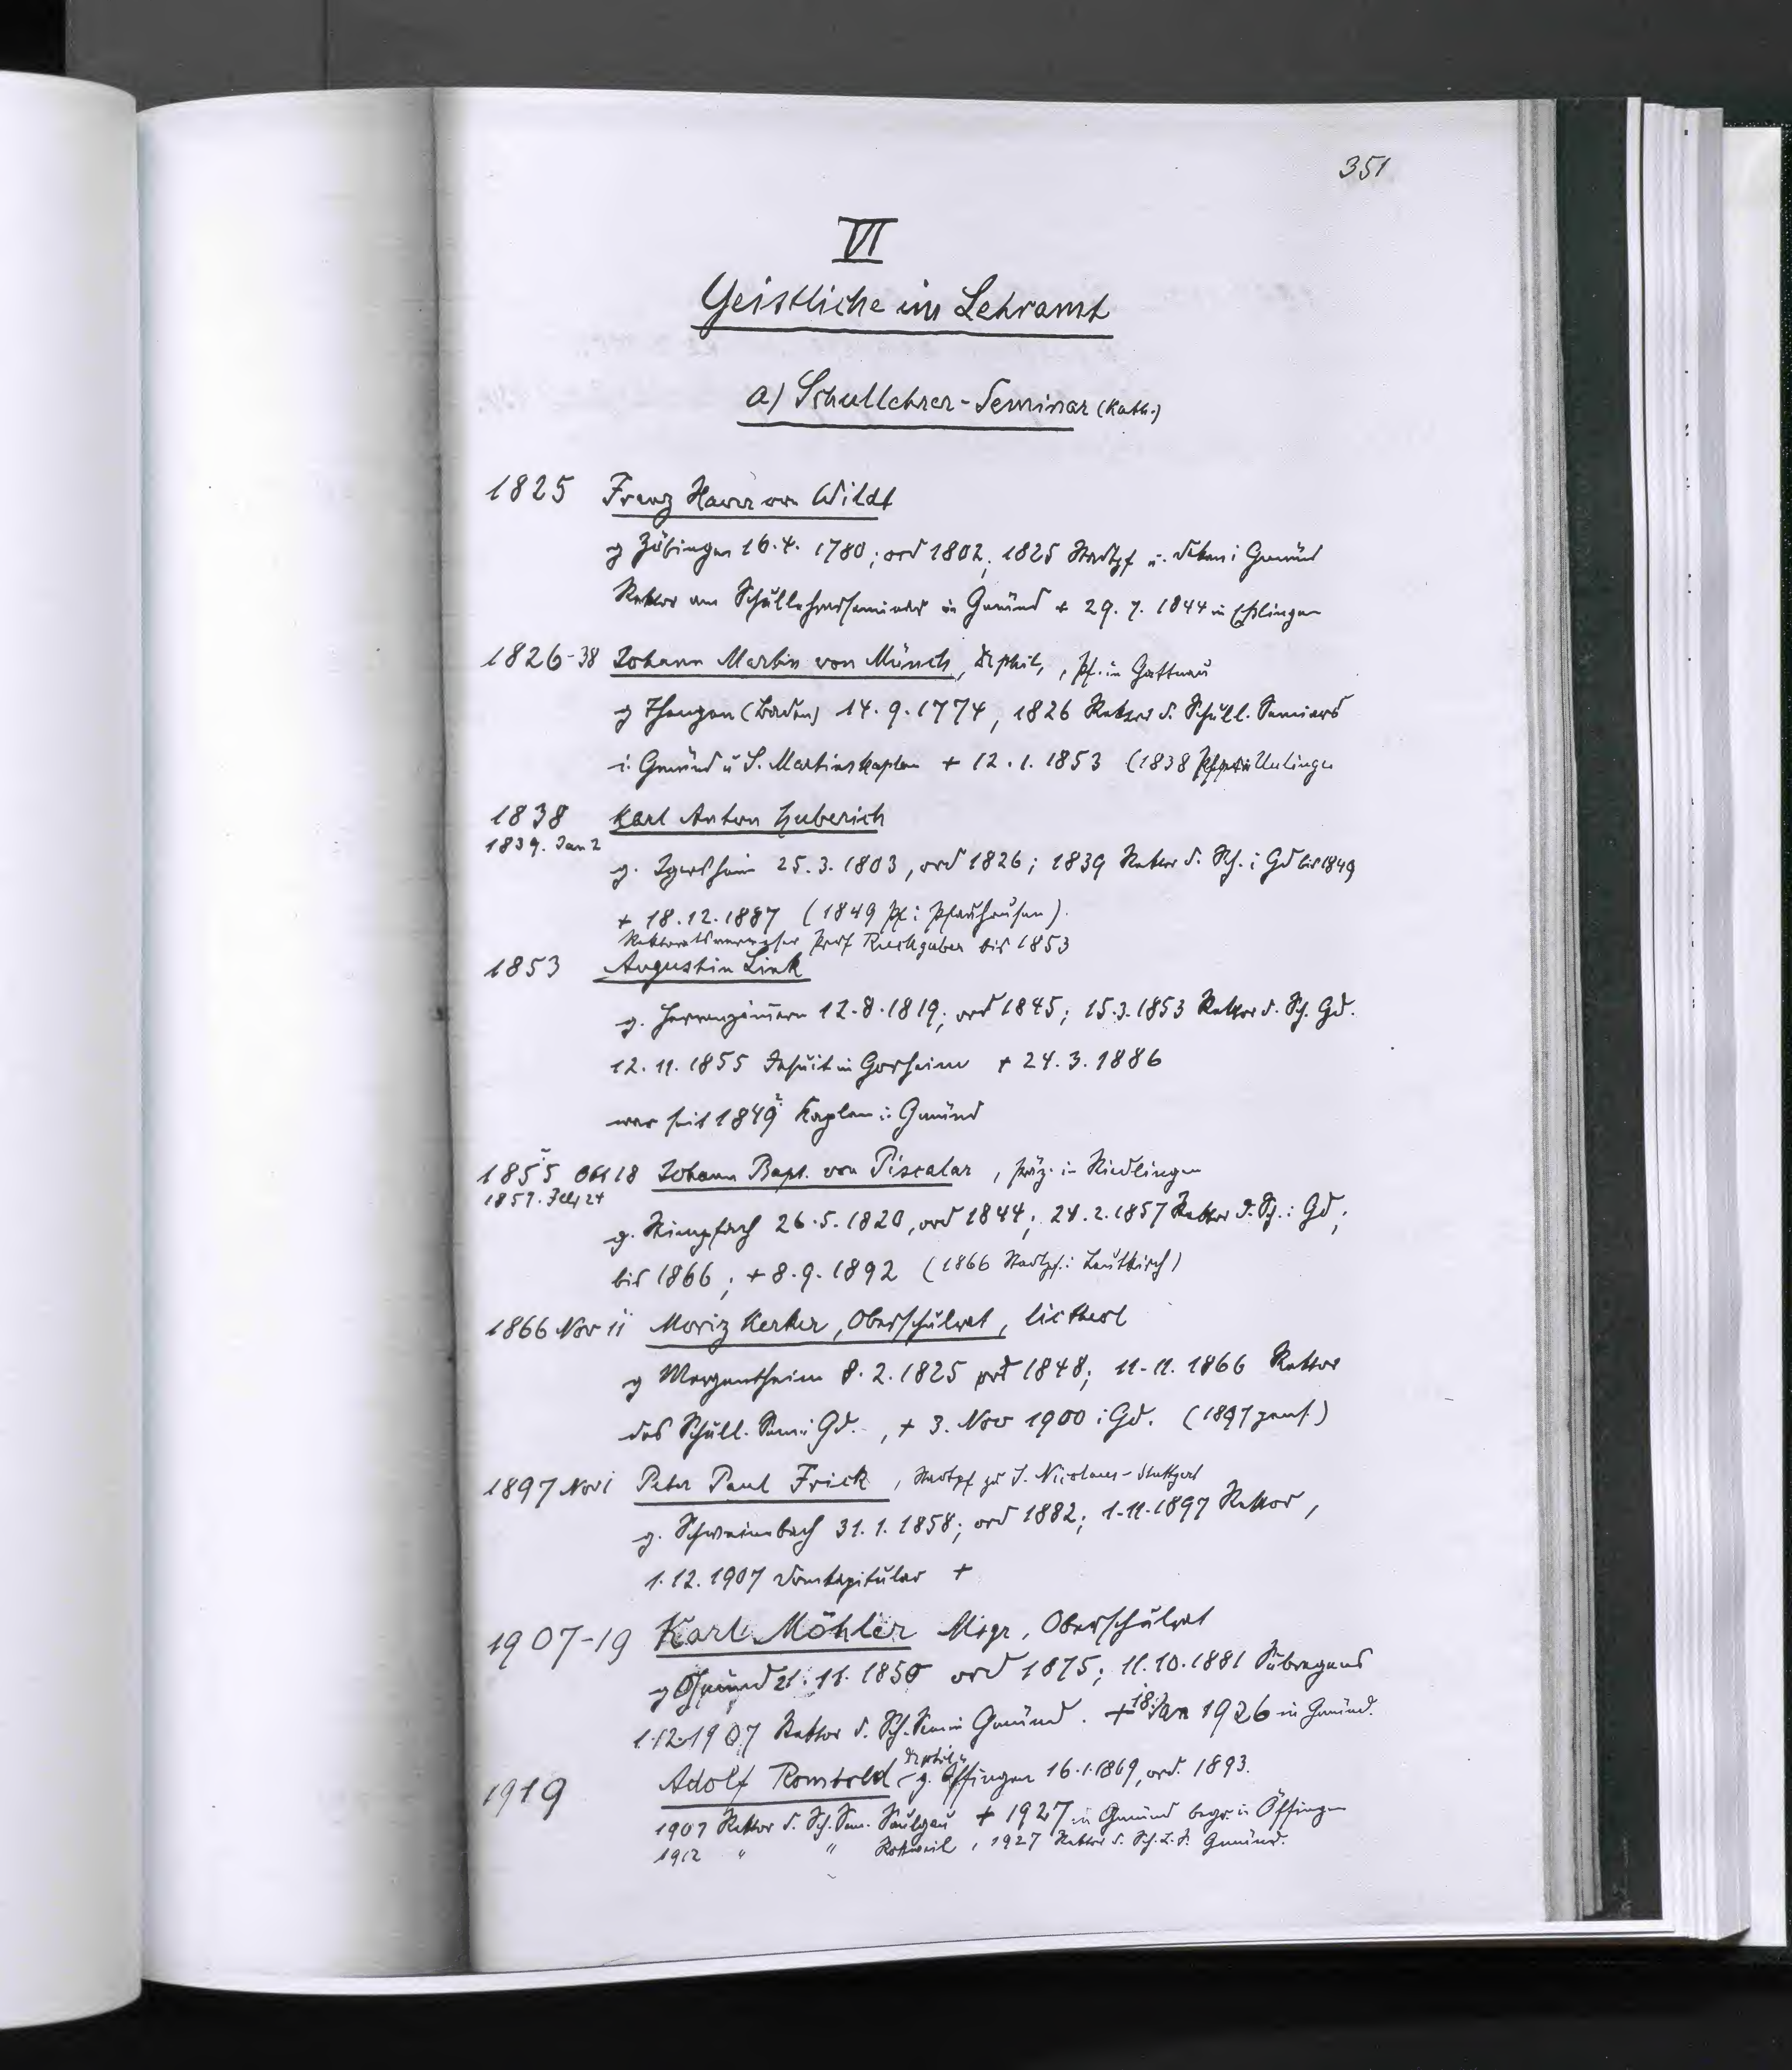 351
VI
Geistliche im Lehramt
a) Schullehrer-Seminar (Kath.)
1825 Franz Xaver von Wildt
g Zöbingen 16.4. 1780; ord 1802, 1825 Stadtpf u. Dekan i Gmünd
Rektor am Schullehrerseminar in Gmünd + 29. 7. 1844 in Eßlingen
1826-38 Johann Martin von Münch, Dr phil, , Pf. in Gattnau
g Thengen (Baden) 14. 9. 1774, 1826 Rektor d. Schull. Seminars
i. Gmünd u S. Martinskaplan + 12. 1. 1853 (1838 Unlingen
1838 Karl Anton Huberich
1839. Jan 2
g. Igersheim 25. 3. 1803, ord 1826; 1839 Rektor d. Sch. i Gd bis 1849
+ 18. 12. 1887 (1849 Pf i Pfauhausen).
Rektoratsverweser Prof Ruckgaber bis 1853
1853 Augustin Link
g. Herrenzimmern 12. 8. 1819, ord 1845; 15. 3. 1853 Rektor d. Sch. Gd.
12. 11. 1855 Jesuit in Gorheim + 24. 3. 1886
war seit 1849 Kaplan i. Gmünd
1855 Okt 18 Johann Bapt. von Piscalar, Präz. in Riedlingen
1857. Feb 24
g. Stimpfach 26. 5. 1820, ord 1844; 24. 2. 1857 Rektor d. Sch. i Gd;
bis 1866; + 8. 9. 1892 (1866 Stadtpf. i Leutkirch)
1866 Nov 11 Moriz Kerker, Oberschulrat, lic theol
g Mergentheim 8. 2. 1825 ord 1848; 11. 11. 1866 Rektor
des Schull. Sem i Gd. , + 3. Nov 1900 i Gd. (1897 pens.)
1897 Nov 1 Peter Paul Frick, Stadtpf zu S. Nicolaus - Stuttgart
g. Schweinebach 31. 1. 1858; ord 1882; 1. 11. 1897 Rektor,
1. 12. 1907 Domkapitular +
1907-19 Karl Möhler Msgr, Oberschulrat
g Gmünd 21. 11. 1850 ord 1875; 11. 10. 1881 Subregens
1. 12. 1907 Rektor d. Sch. Sem in Gmünd. + 18. Jan 1926 in Gmünd.
1919 Adolf Rombold Dr phil. g. Öffingen 16. 1. 1869, ord. 1893.
1907 Rektor d. Sch. Sem. Saulgau + 1927 in Gmünd begr. in Öffingen
1912 " " Rottweil, 1927 Rektor d. Sch. L. S. Gmünd.